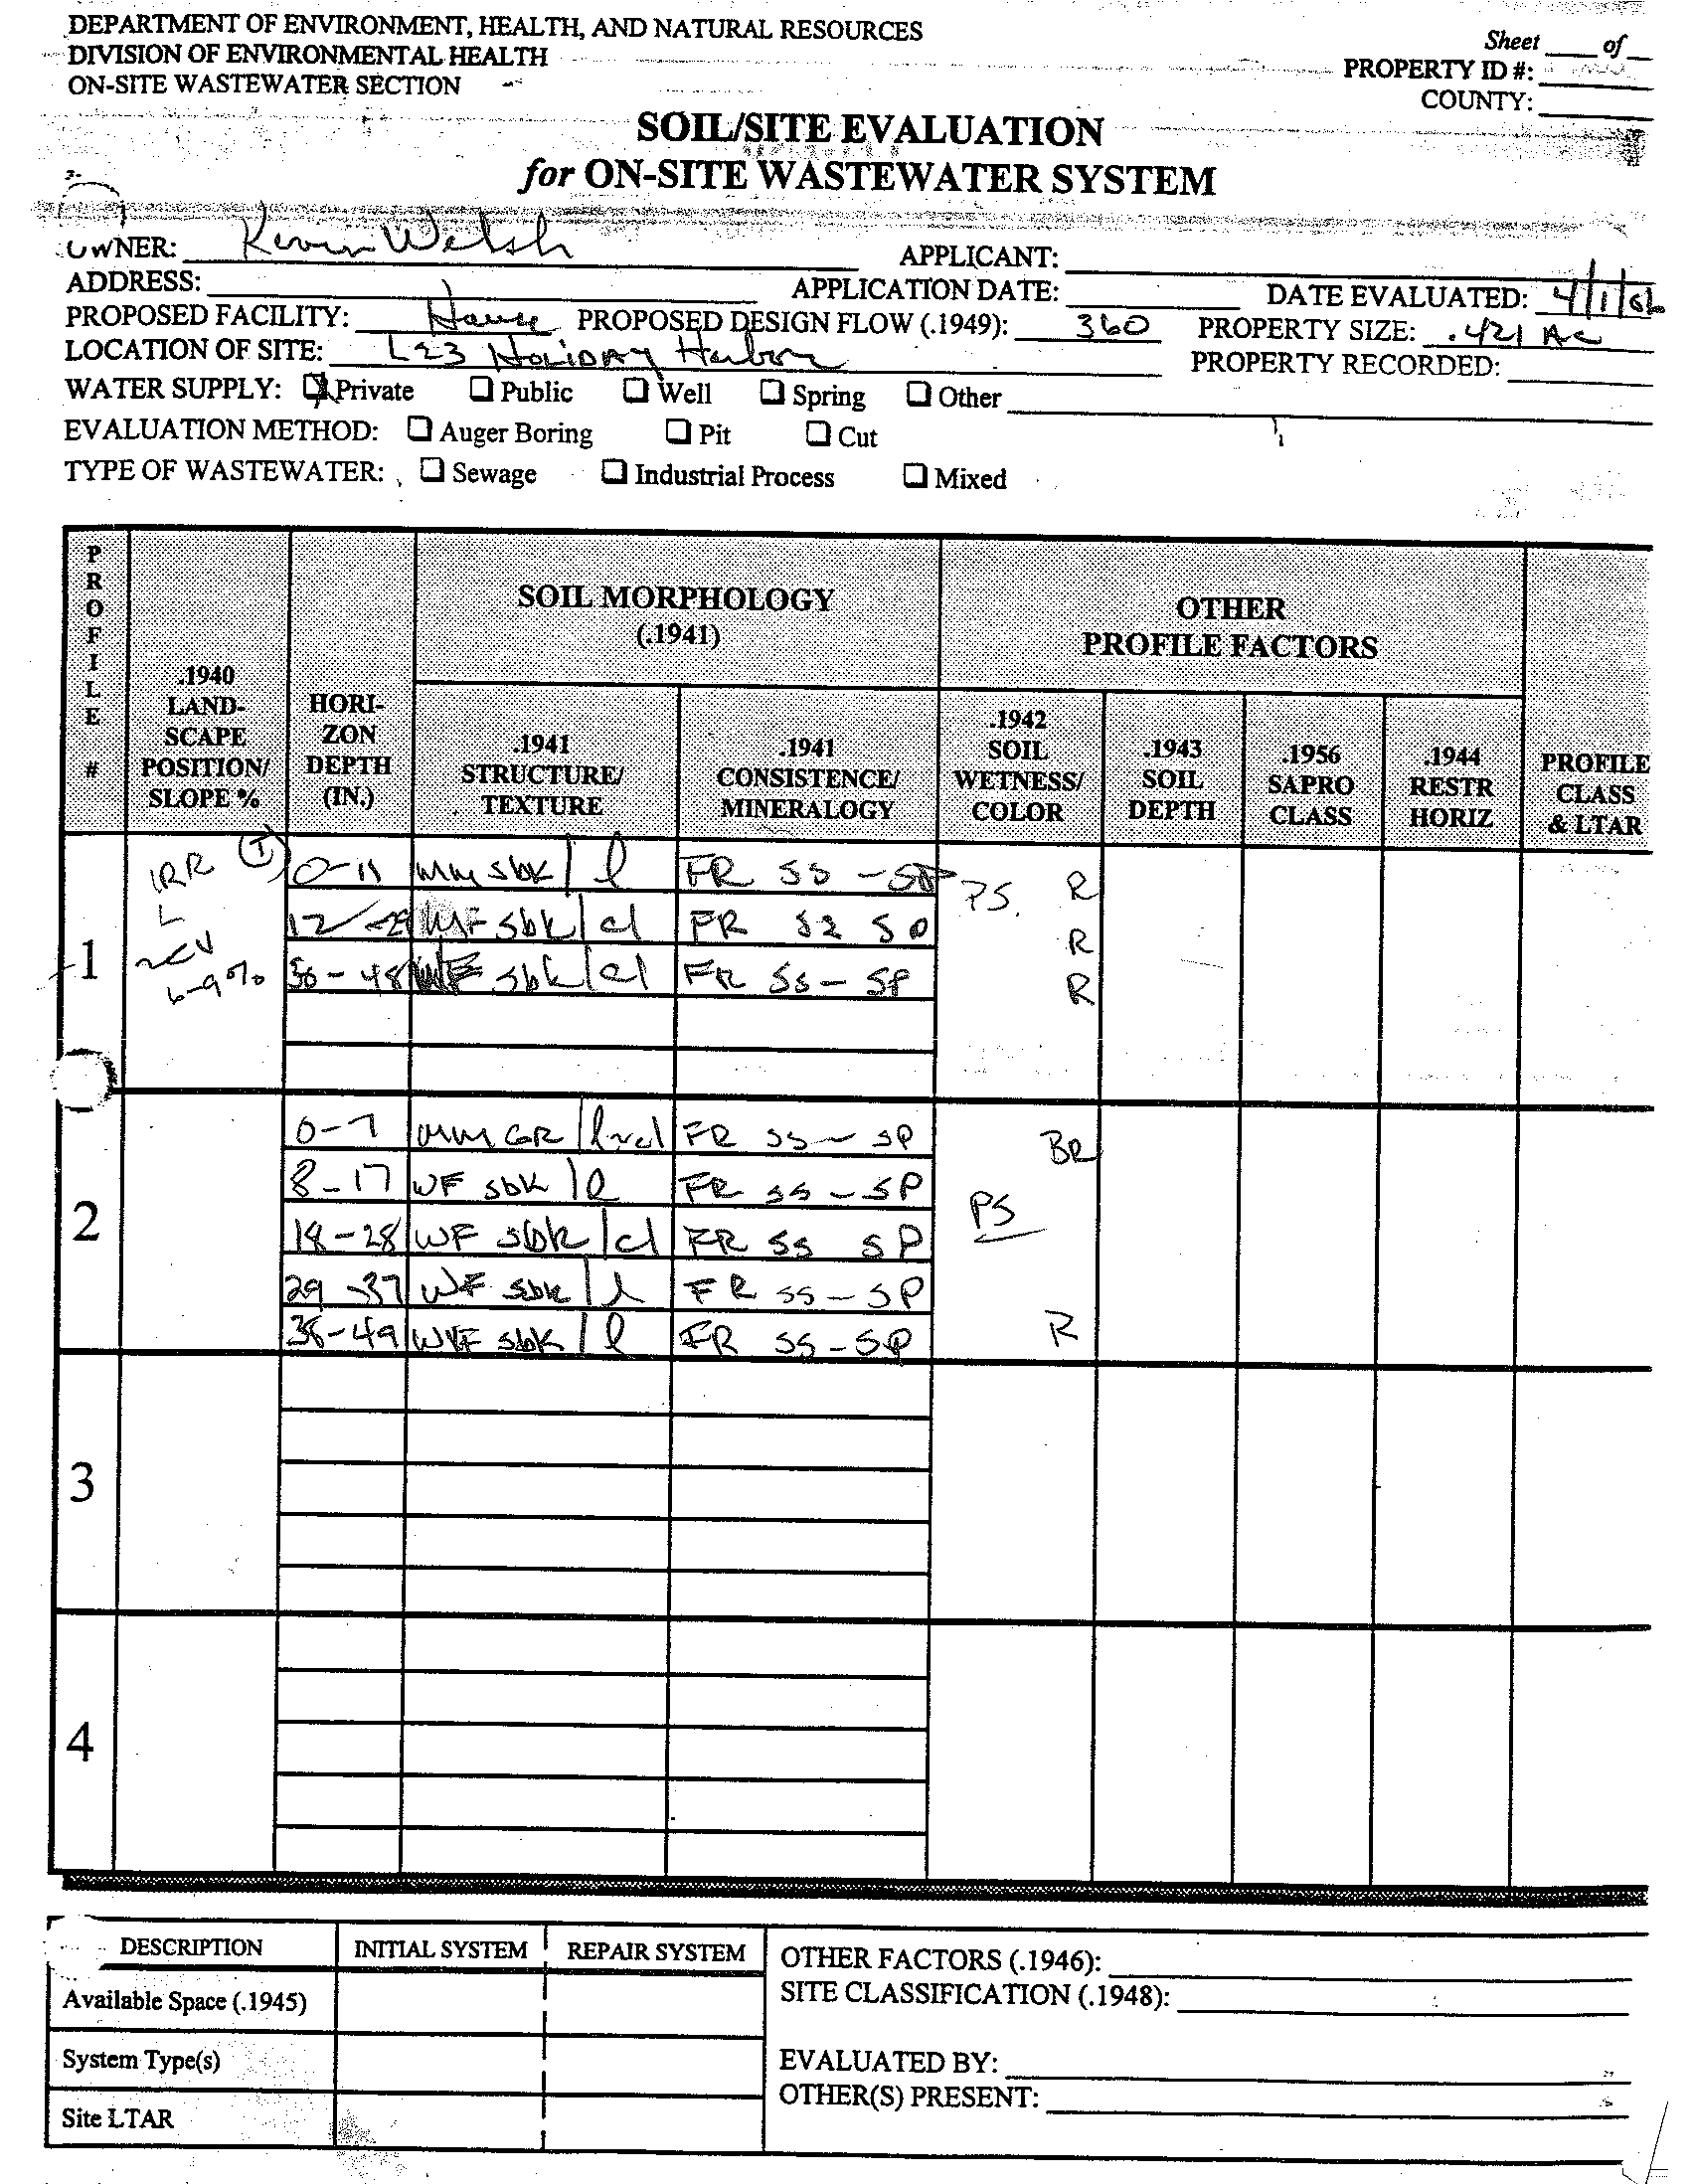 DEPARTMENT OF ENVIRONMENT, HEALTH, AND NATURAL RESOURCES
DIVISION OF ENVIRONMENTAL HEALTH
ON-SITE WASTEWATER SECTION
Sheet ____ of __
PROPERTY ID #:
COUNTY:
SOIL/SITE EVALUATION
for ON-SITE WASTEWATER SYSTEM
OWNER: Kevin Welsh APPLICANT:
ADDRESS: APPLICATION DATE: DATE EVALUATED: 4/1/06
PROPOSED FACILITY: House PROPOSED DESIGN FLOW (.1949): 360 PROPERTY SIZE: .421 AC
LOCATION OF SITE: L23 HOLIDAY Harbor PROPERTY RECORDED:
WATER SUPPLY: ☒ Private ☐ Public ☐ Well ☐ Spring ☐ Other
EVALUATION METHOD: ☐ Auger Boring ☐ Pit ☐ Cut
TYPE OF WASTEWATER: ☐ Sewage ☐ Industrial Process ☐ Mixed
PROFILE #
.1940 LAND-SCAPE POSITION/ SLOPE %
HORI-ZON DEPTH (IN.)
SOIL MORPHOLOGY (.1941)
.1941 STRUCTURE/ TEXTURE
.1941 CONSISTENCE/ MINERALOGY
OTHER PROFILE FACTORS
.1942 SOIL WETNESS/ COLOR
.1943 SOIL DEPTH
.1956 SAPRO CLASS
.1944 RESTR HORIZ
PROFILE CLASS & LTAR
1
IRR
L
6-9%
0-11 MM sbk / l FR SS - SP PS. R
12-29 MF sbk / cl FR SS SP R
30-48 sbk / cl FR SS - SP R
2
0-7 MM GR / FR SS - SP BR
8-17 WF sbk / l FR SS - SP
PS
18-28 WF sbk / cl FR SS SP
29-37 WF sbk / l FR SS - SP
38-49 WVF sbk / l FR SS - SP R
3
4
DESCRIPTION INITIAL SYSTEM REPAIR SYSTEM
Available Space (.1945)
System Type(s)
Site LTAR
OTHER FACTORS (.1946):
SITE CLASSIFICATION (.1948):
EVALUATED BY:
OTHER(S) PRESENT: